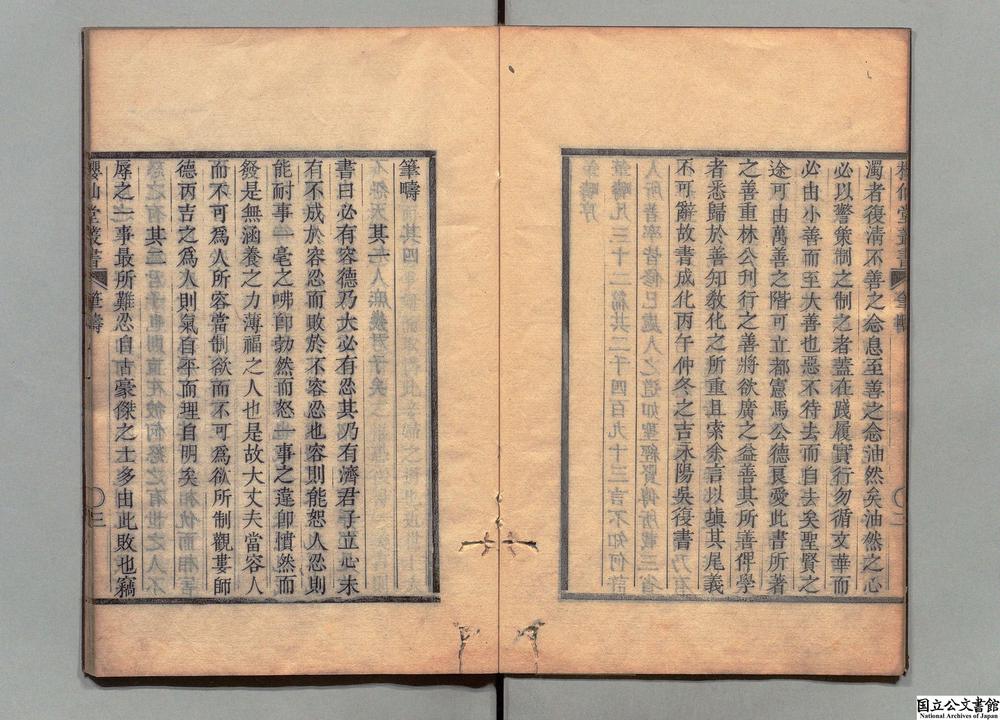 濁者復淸不善之念息至善之念油然矣油然之心
必以警策制之制之者蓋在踐履實行勿循文華而
必由小善而至大善也惡不待去而自去矣聖賢之
途可由萬善之階可立都憲馬公德良愛此書所著
之善重林公刋行之善將欲廣之益善其所善俾學
者悉歸於善知敎化之所重且索余言以塡其尾義
不可辭故書成化丙午仲冬之吉永陽吳復書
筆疇
其一
書曰必有容德乃大必有忍其乃有濟君子立心未
有不成於容忍而敗於不容忍也容則能恕人忍則
能耐事一毫之咈卽勃然而怒一事之違卽憤然而
發是無涵養之力薄福之人也是故大丈夫當容人
而不可爲人所容當制欲而不可爲欲所制觀婁師
德丙吉之爲人則氣自平而理自明矣
其二
辱之一事最所難忍自古豪傑之士多由此敗也竊
筆疇
三
国立公文書館
National Archives of Japan